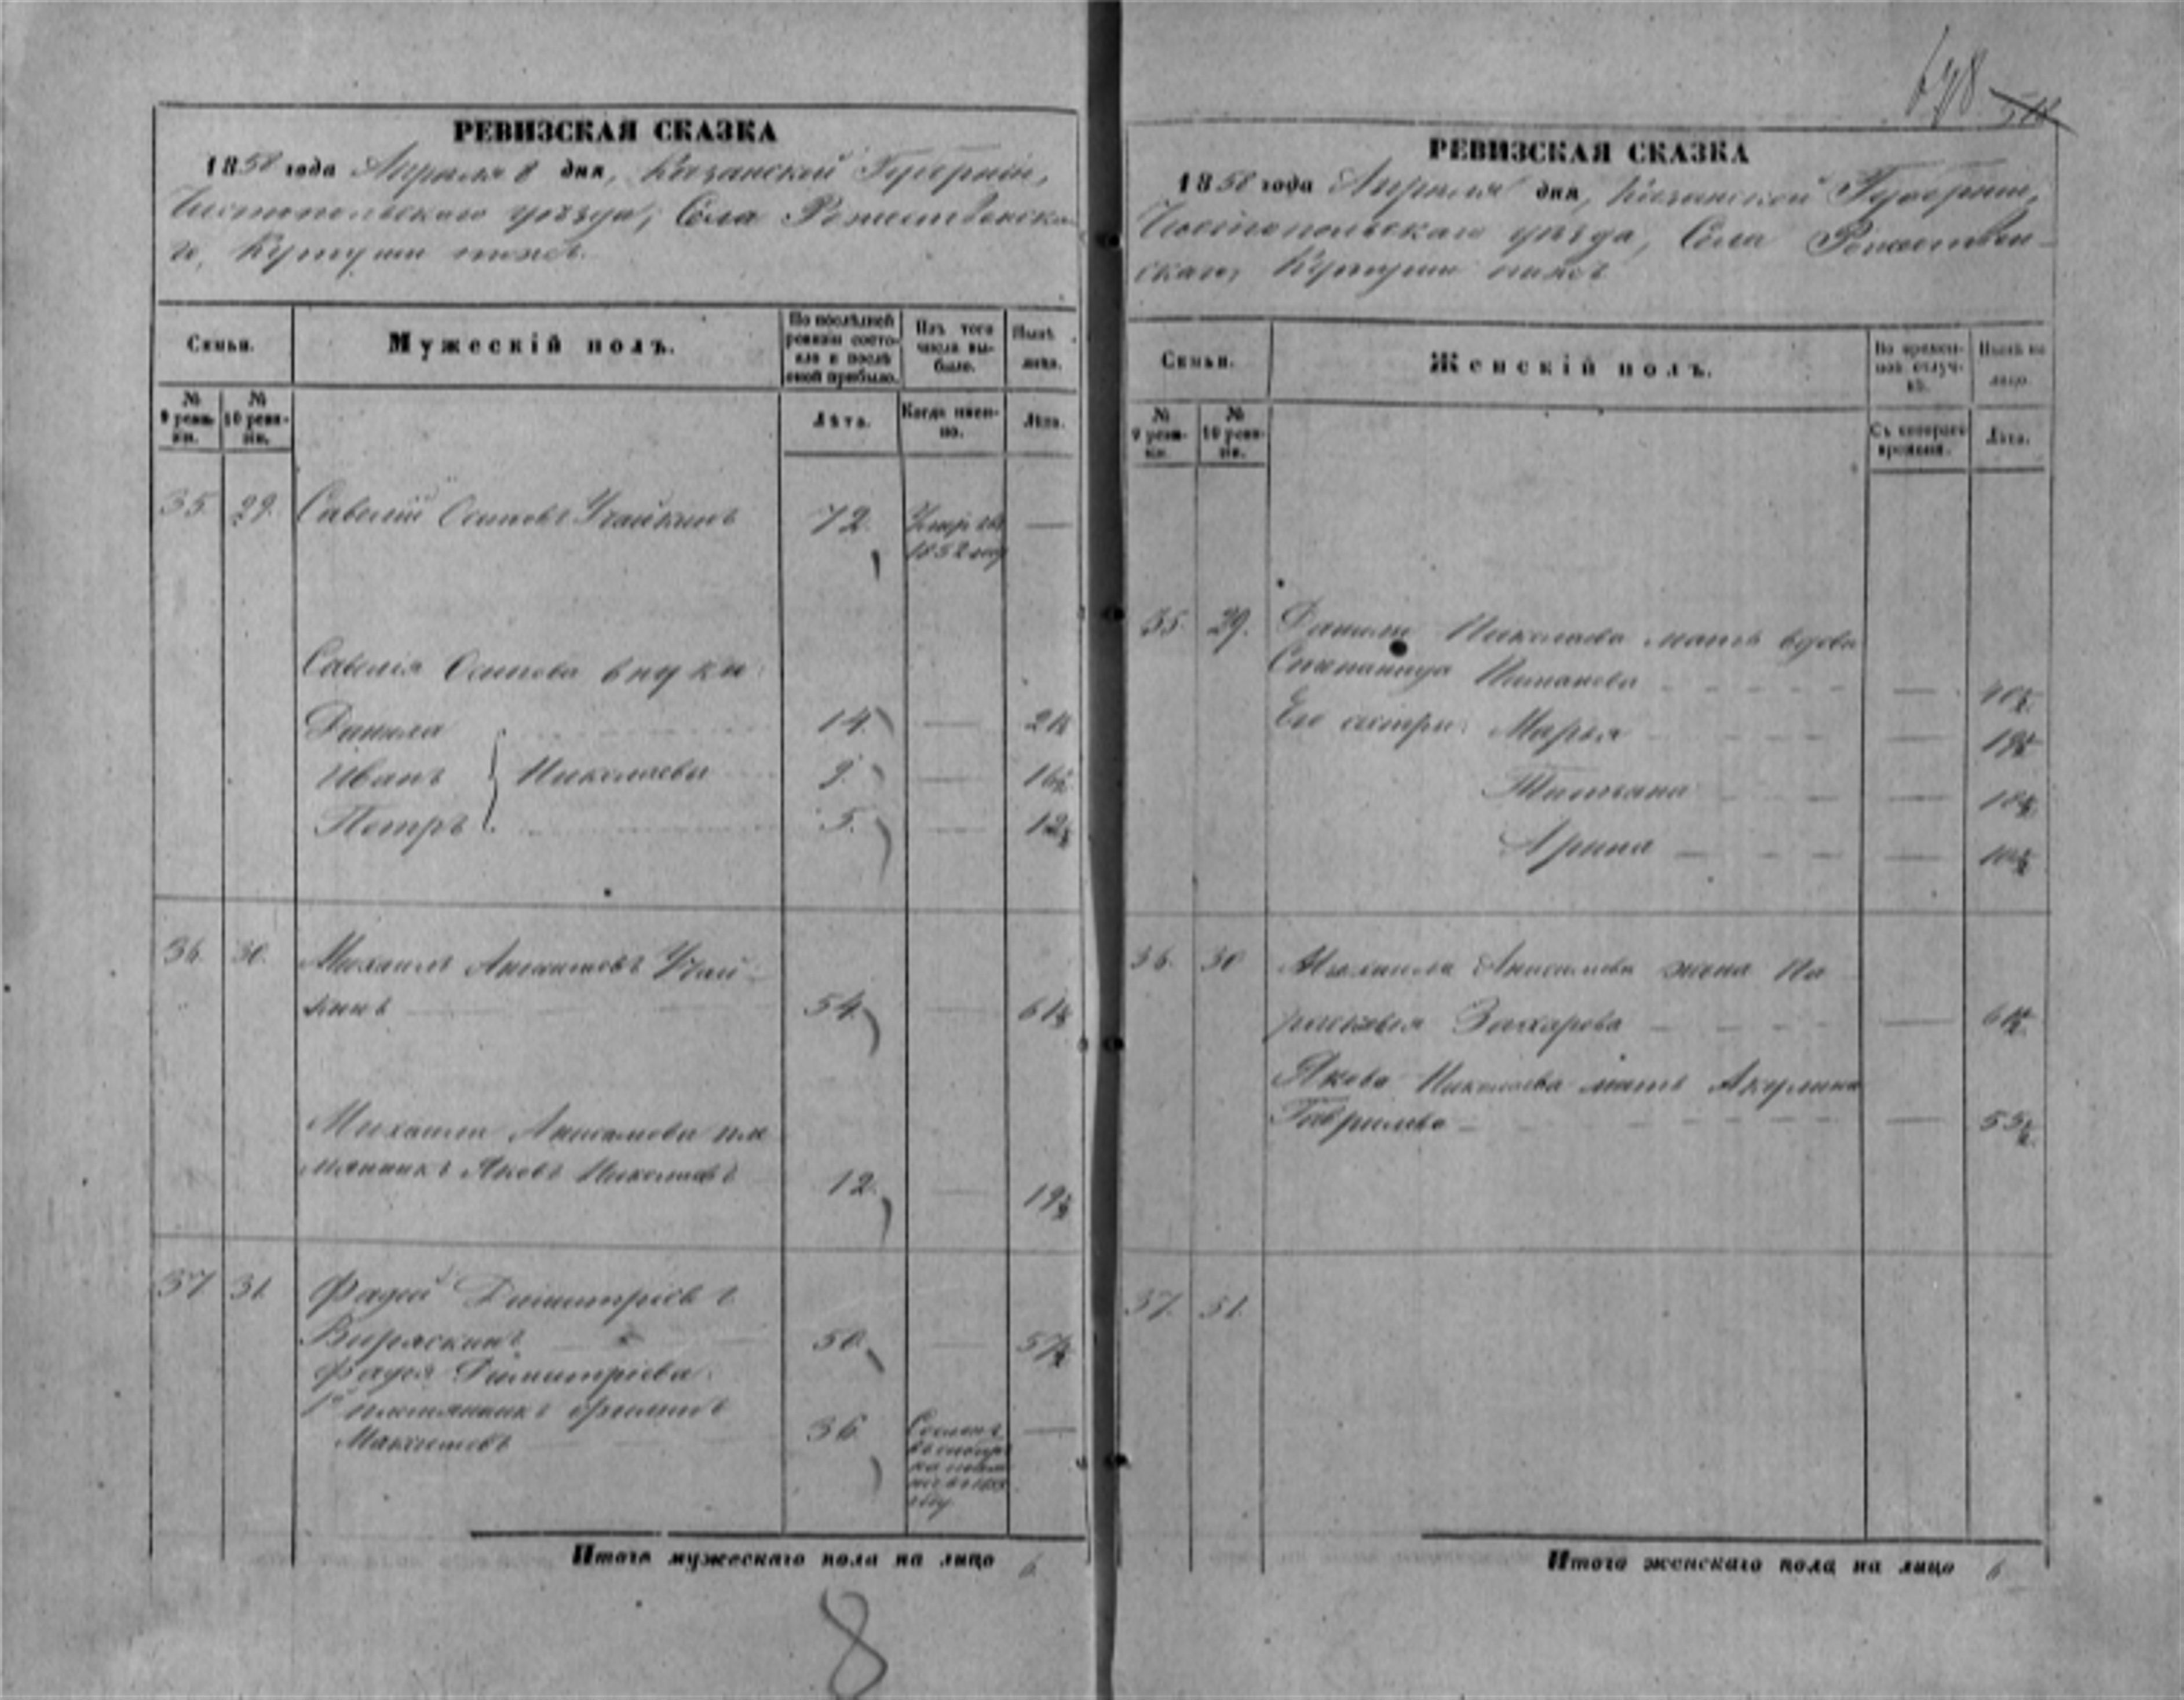 678
РЕВИЗСКАЯ СКАЗКА
1858 года Апреля 8 дня, Казанской Губернiи,
Чистопольскаго уѣзда, Села Рожественска
го, Кутуши тожъ.
Семьи.
Мужескiй полъ.
По послѣдней ревизiи состояло и послѣ оной прибыло.
Изъ того числа выбыло.
Нынѣ лицо.
№ 9 ревизiи.
№ 10 ревизiи.
Лѣта.
Когда именно.
Лѣта.
35. 29. Савелiй Осиповъ Учайкинъ 72. Умръ въ —
1852 году
Савелiя Осипова внуки:
Данила 14. — 21½
Иванъ Николаевы 9. — 16½
Петръ 5. — 12½
36. 30. Михаилъ Анисимовъ Учай-
кинъ 54. — 61½
Михаила Анисимова пле
мянникъ Яковъ Николаевъ 12. — 19½
37 31. Фадей Димитрiевъ
50. — 57½
Фадея Димитрiева
1й племянникъ
Максимовъ 36 Сосланъ —
году
Итого мужескаго пола на лицо 6
8
РЕВИЗСКАЯ СКАЗКА
1858 года Апреля дня, Казанской Губернiи,
Чистопольскаго уѣзда, Села Рожественскаго, Кутуши тожъ
Семьи.
Женскiй полъ.
Во временной отлучкѣ.
Нынѣ на лицо.
№ 9 ревизiи.
№ 10 ревизiи.
Съ котораго времени.
Лѣта.
35. 29. Данилы Николаева мать вдова
Степанида — 40½
Его сестры: Марья — 19½
Татьяна — 18½
Арина — 10½
36. 30 Михаила Анисимова жена Па
расковья Захарова — 61½
Якова Николаева мать Акулина
Гаврилова — 55½
37. 31.
Итого женскаго пола на лицо 6